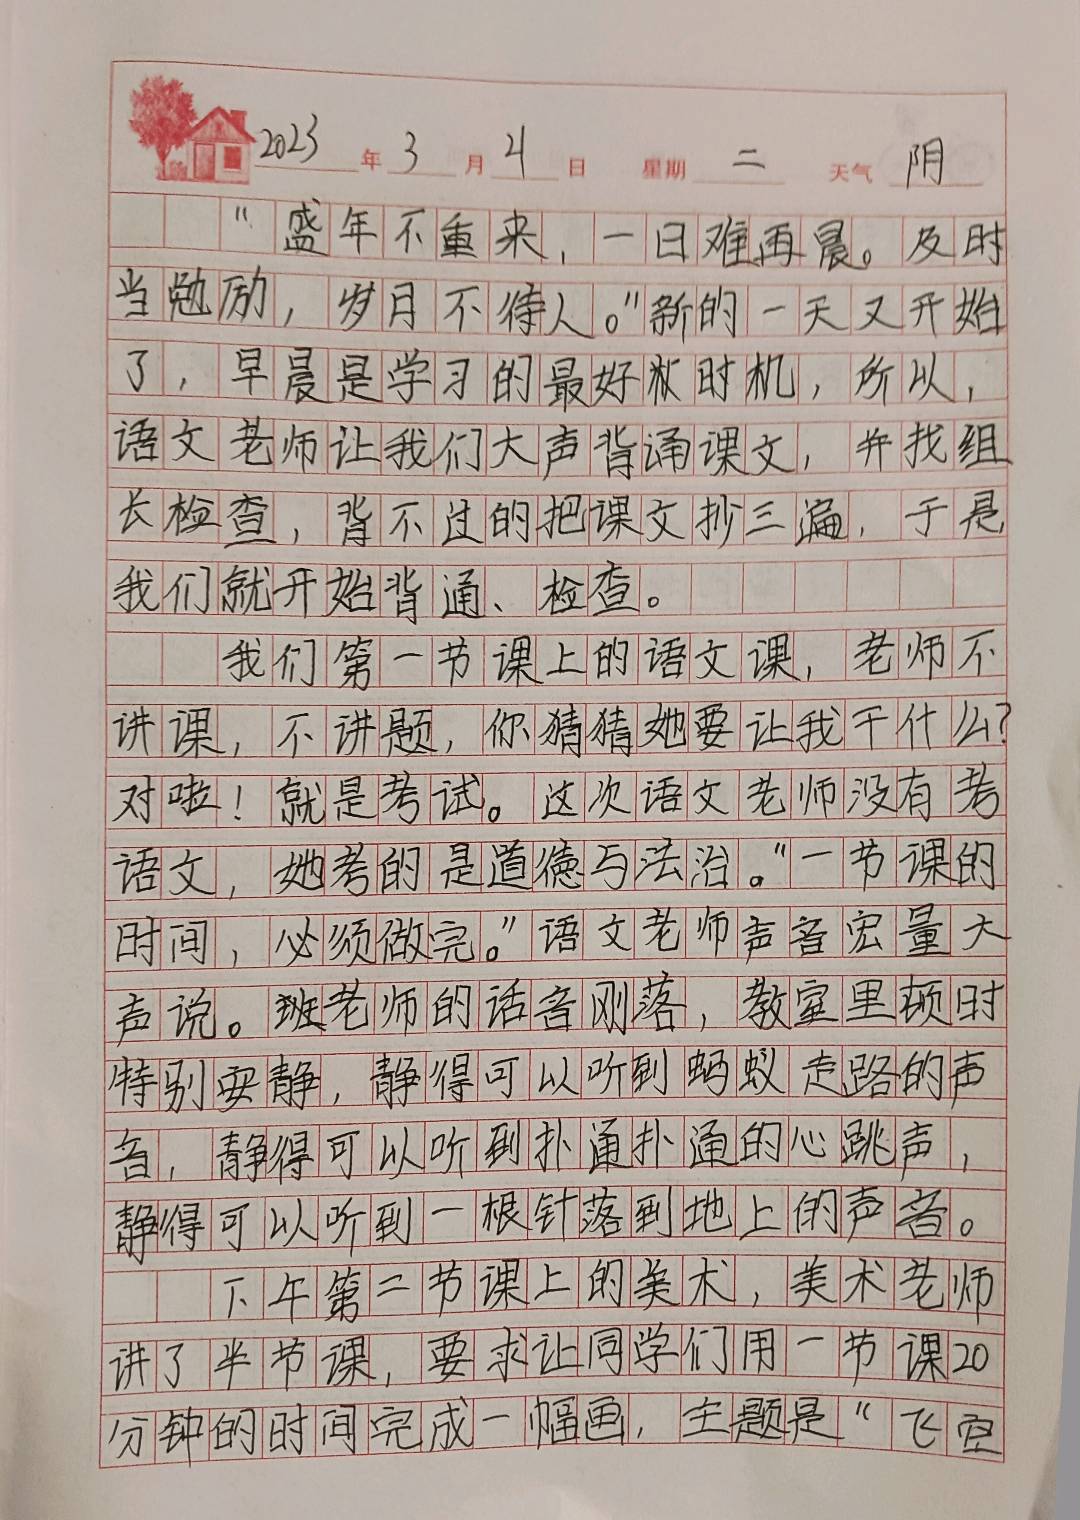 2023年3月4日 星期二 天气阴
“盛年不重来，一日难再晨。及时
当勉励，岁月不待人。”新的一天又开始
了，早晨是学习的最好时机，所以，
语文老师让我们大声背诵课文，并找组
长检查，背不过的把课文抄三遍，于是
我们就开始背通、检查。
我们第一节课上的语文课，老师不
讲课，不讲题，你猜猜她要让我干什么？
对啦！就是考试。这次语文老师没有考
语文，她考的是道德与法治。“一节课的
时间，必须做完。”语文老师声音宏量大
声说。班老师的话音刚落，教室里顿时
特别安静，静得可以听到蚂蚁走路的声
音，静得可以听到扑通扑通的心跳声，
静得可以听到一根针落到地上的声音。
下午第二节课上的美术，美术老师
讲了半节课，要求让同学们用一节课20
分钟的时间完成一幅画，主题是“飞空